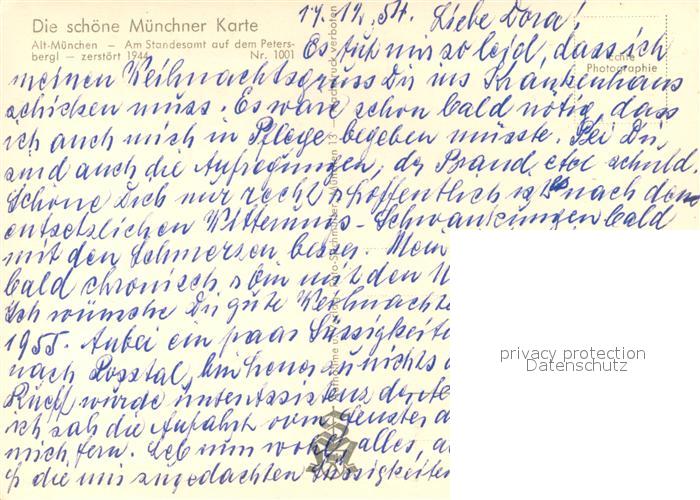 Die schöne Münchner Karte
Alt-München – Am Standesamt auf dem Peters-
bergl – zerstört 1944 Nr. 1001
Echte
Photographie
17.12.54. Liebe Dora!
Es tut mir so leid, dass ich
meinen Weihnachtsgruss Dir ins Krankenhaus
schicken muss. Es wäre schon bald nötig, dass
ich auch mich in Pflege begeben müsste. Bei Dir
sind auch die Aufregungen, der Brand etc schuld.
Schone Dich nur recht, hoffentlich ist es nach den
entsetzlichen Witterungs-Schwankungen bald
mit den Schmerzen besser. Mein
bald chronisch, bin mit den
Ich wünsche Dir gute Weihnachte
1955. Anbei ein paar Süssigkeite
nach Rosstal, bin heuer zu nichts
Rueff wurde unter Assistenz
ich sah die Auffahrt vom Fenster
mich fern. Leb nun wohl, alles
die mir zugedachten Süssigkeiten
privacy protection
Datenschutz